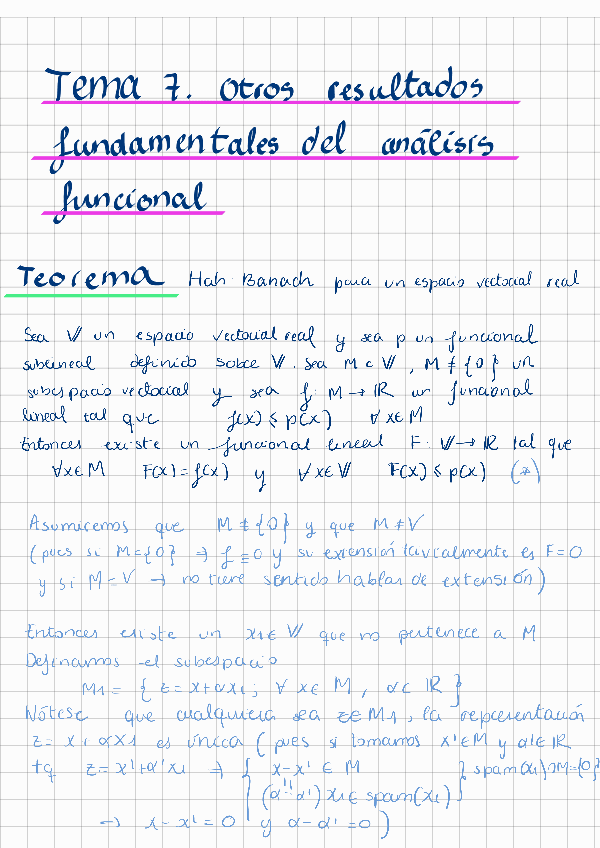 Tema 7. Otros resultados
fundamentales del análisis
funcional
Teorema Hah Banach para un espacio vectorial real
Sea V un espacio vectorial real y sea p un funcional
sublineal definido sobre V. Sea M ⊂ V, M ≠ {0} un
subespacio vectorial y sea f: M → ℝ un funcional
lineal tal que f(x) ≤ p(x) ∀x∈M
Entonces existe un funcional lineal F: V → ℝ tal que
∀x∈M F(x) = f(x) y ∀x∈V F(x) ≤ p(x) (*)
Asumiremos que M ≠ {0} y que M ≠ V
(pues si M={0} ⇒ f ≡ 0 y su extensión trivialmente es F=0
y si M=V → no tiene sentido hablar de extensión)
Entonces existe un x1∈V que no pertenece a M
Definamos el subespacio
M1 = { z = x+αx1; ∀ x∈ M, α∈ ℝ }
Nótese que cualquiera sea z∈M1, la representación
z = x + αx1 es única (pues si tomamos x'∈M y α'∈ℝ
tq z = x'+α'x1 ⇒ { x-x' ∈ M } spam(x1)∩M={0}
(α-α') x1 ∈ spam(x1)
→ x-x' = 0 y α-α' = 0 )